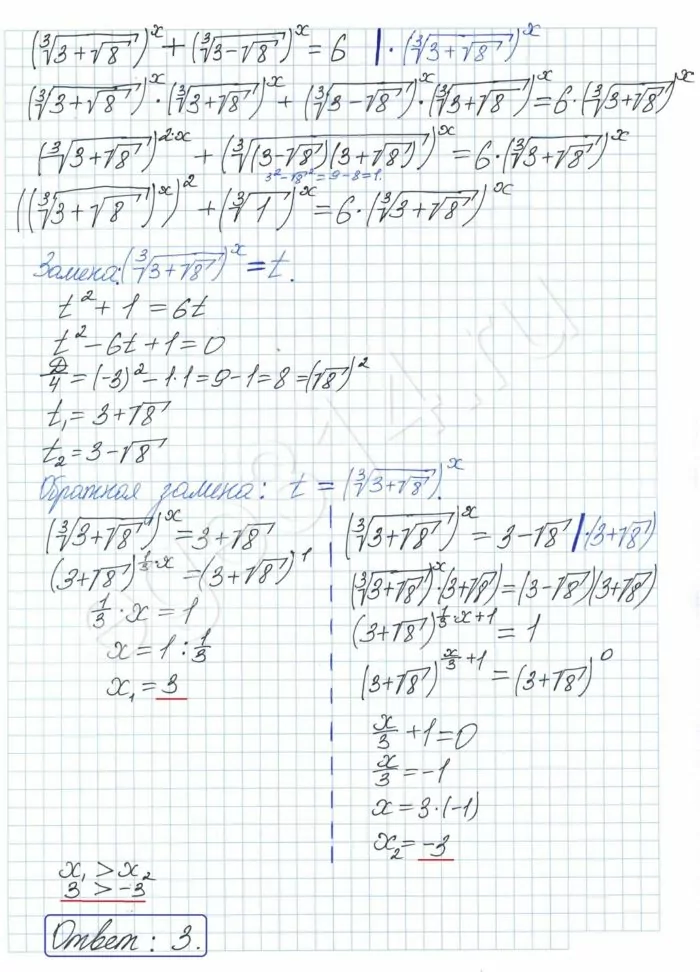 (∛(3+√8))^x + (∛(3-√8))^x = 6 | · (∛(3+√8))^x
(∛(3+√8))^x · (∛(3+√8))^x + (∛(3-√8))^x · (∛(3+√8))^x = 6 · (∛(3+√8))^x
(∛(3+√8))^(2·x) + (∛((3-√8)(3+√8)))^x = 6 · (∛(3+√8))^x
3²-√8² = 9-8=1.
((∛(3+√8))^x)² + (∛1)^x = 6 · (∛(3+√8))^x
Замена: (∛(3+√8))^x = t.
t² + 1 = 6t
t² - 6t + 1 = 0
D/4 = (-3)² - 1·1 = 9 - 1 = 8 = (√8)²
t₁ = 3+√8
t₂ = 3-√8
Обратная замена: t = (∛(3+√8))^x.
(∛(3+√8))^x = 3+√8
(3+√8)^(1/3·x) = (3+√8)^1
1/3 · x = 1
x = 1 : 1/3
x₁ = 3
(∛(3+√8))^x = 3-√8 | ·(3+√8)
(∛(3+√8))^x · (3+√8) = (3-√8)(3+√8)
(3+√8)^(1/3·x+1) = 1
(3+√8)^(x/3+1) = (3+√8)^0
x/3 + 1 = 0
x/3 = -1
x = 3·(-1)
x₂ = -3
x₁ > x₂
3 > -3
Ответ: 3.